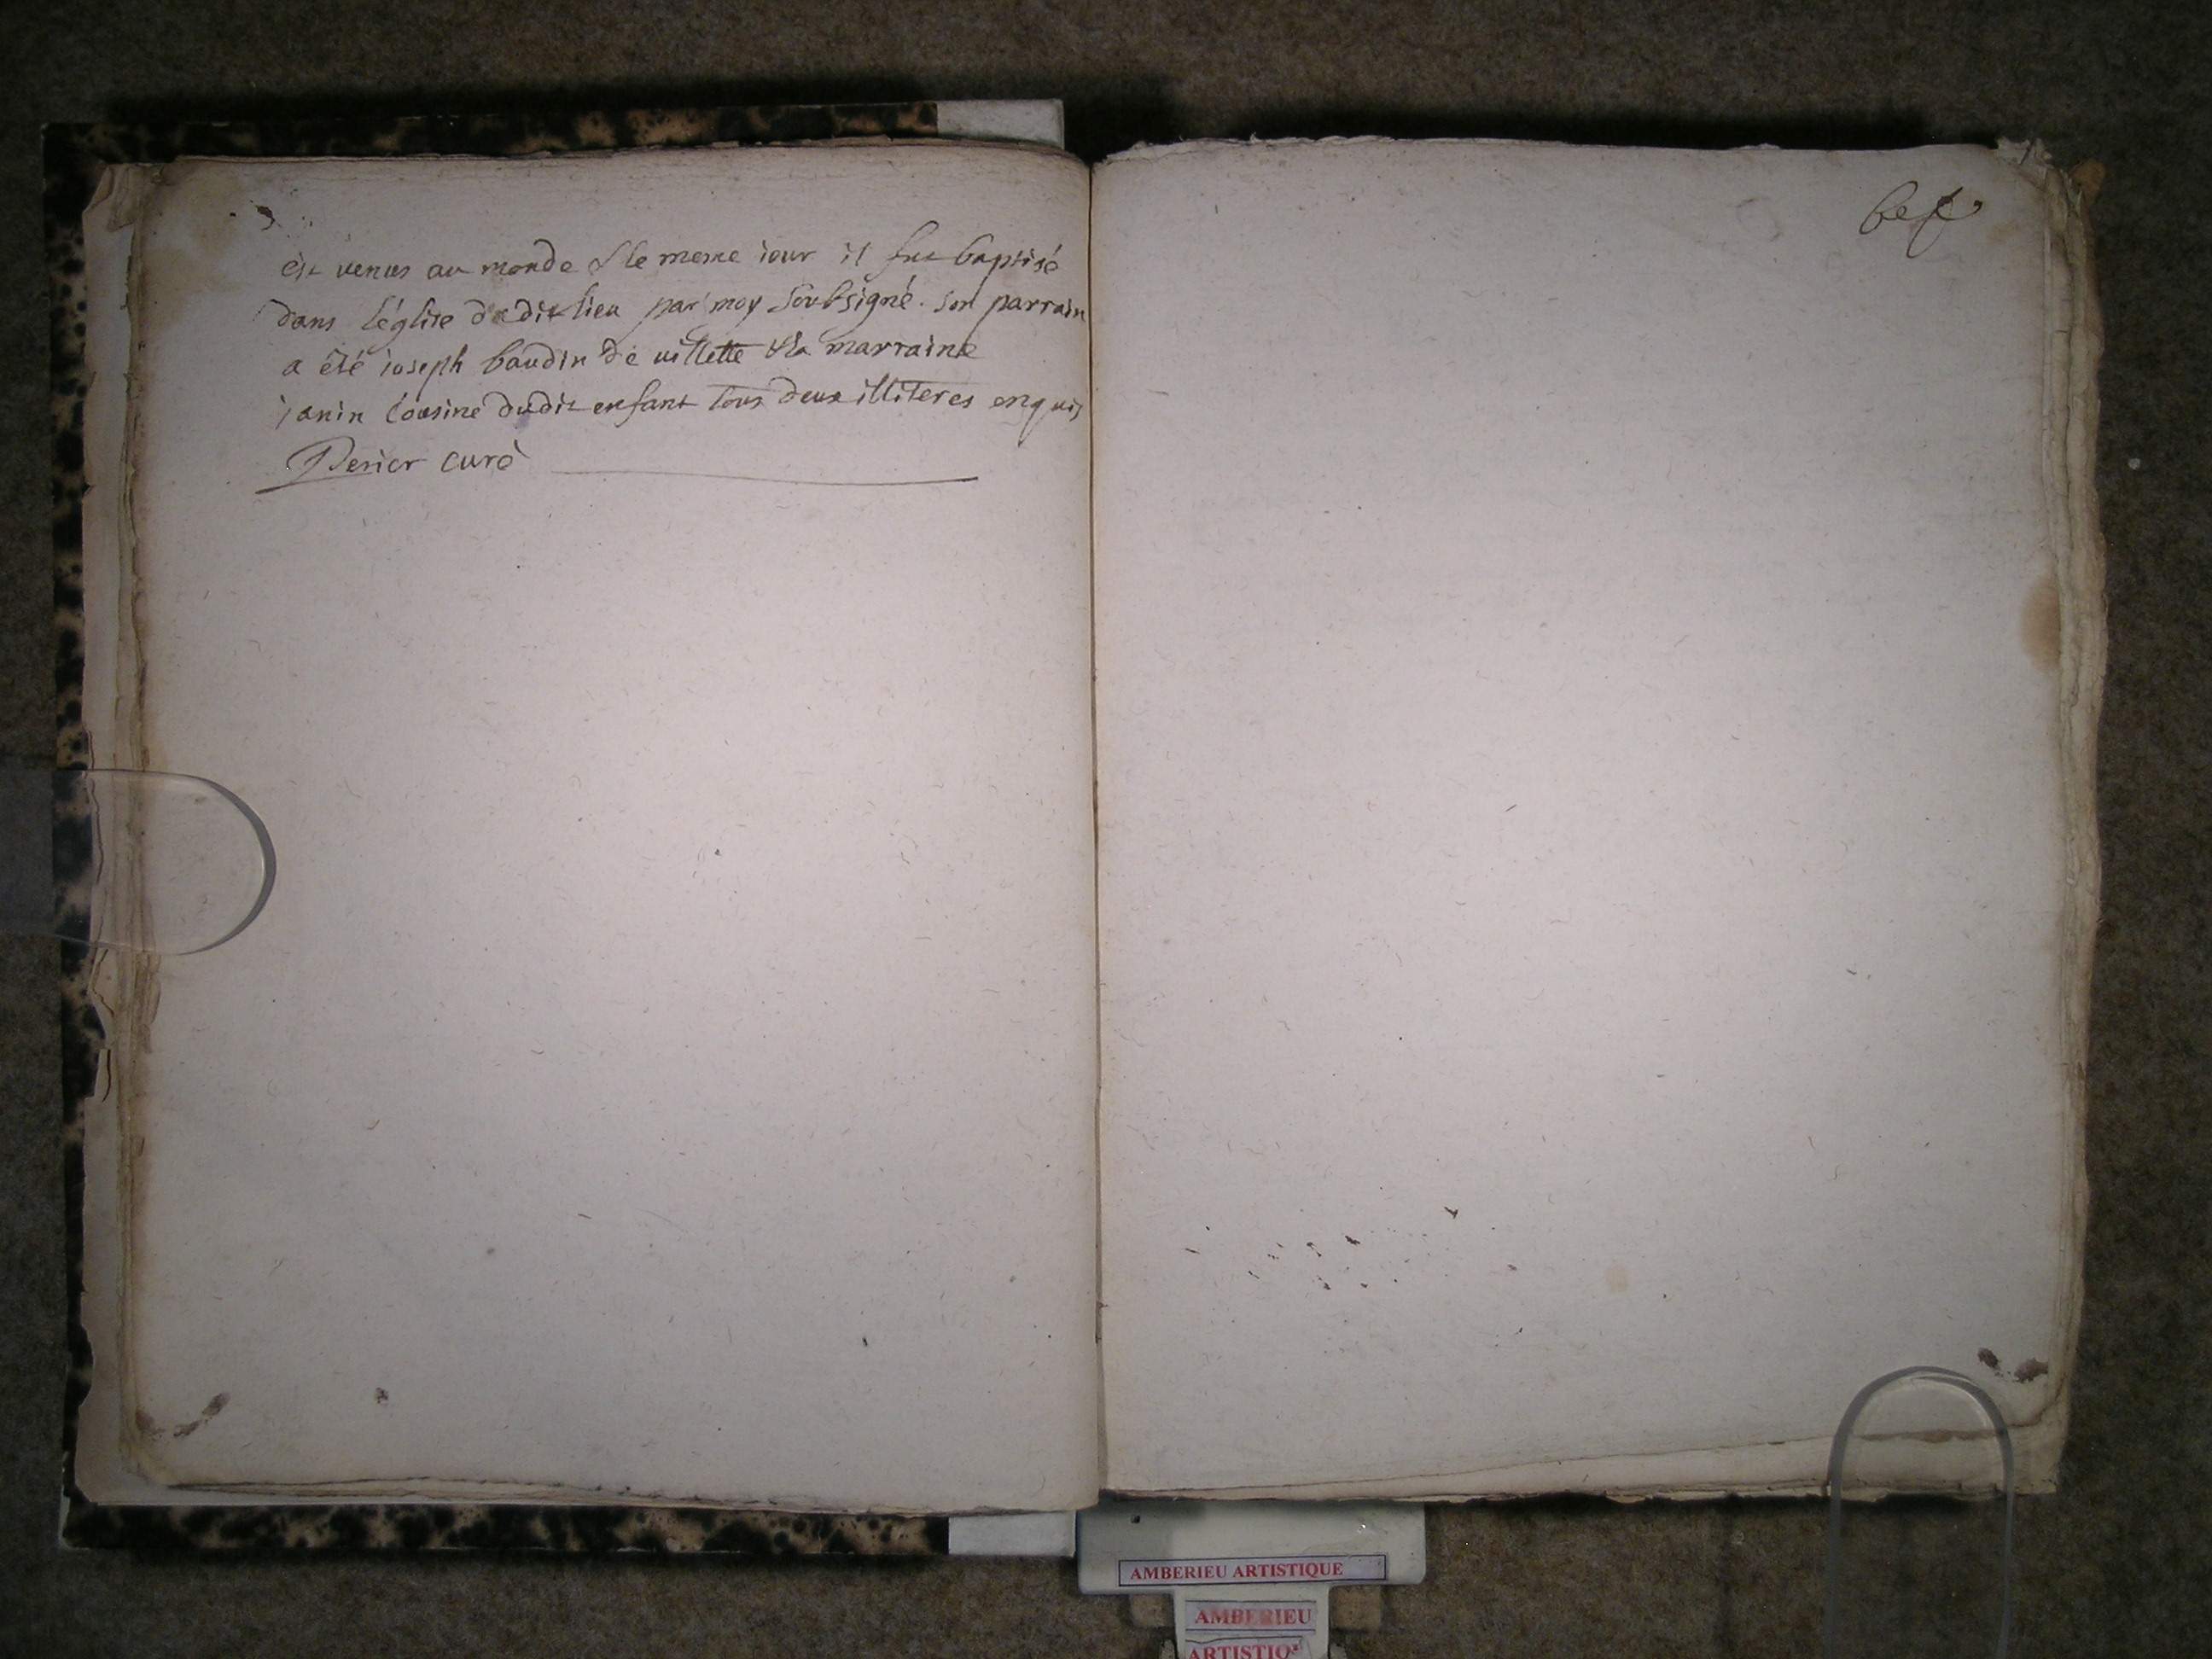 est venus au monde & le meme iour il fut baptisé
dans l'église dudit lieu par moy Soubsigné. Son parrain
a été ioseph baudin de villette & la marraine
janin Cousine dudit enfant tous deux illiteres enquis
Perier curé
AMBERIEU ARTISTIQUE
AMBERIEU
ARTISTIQ